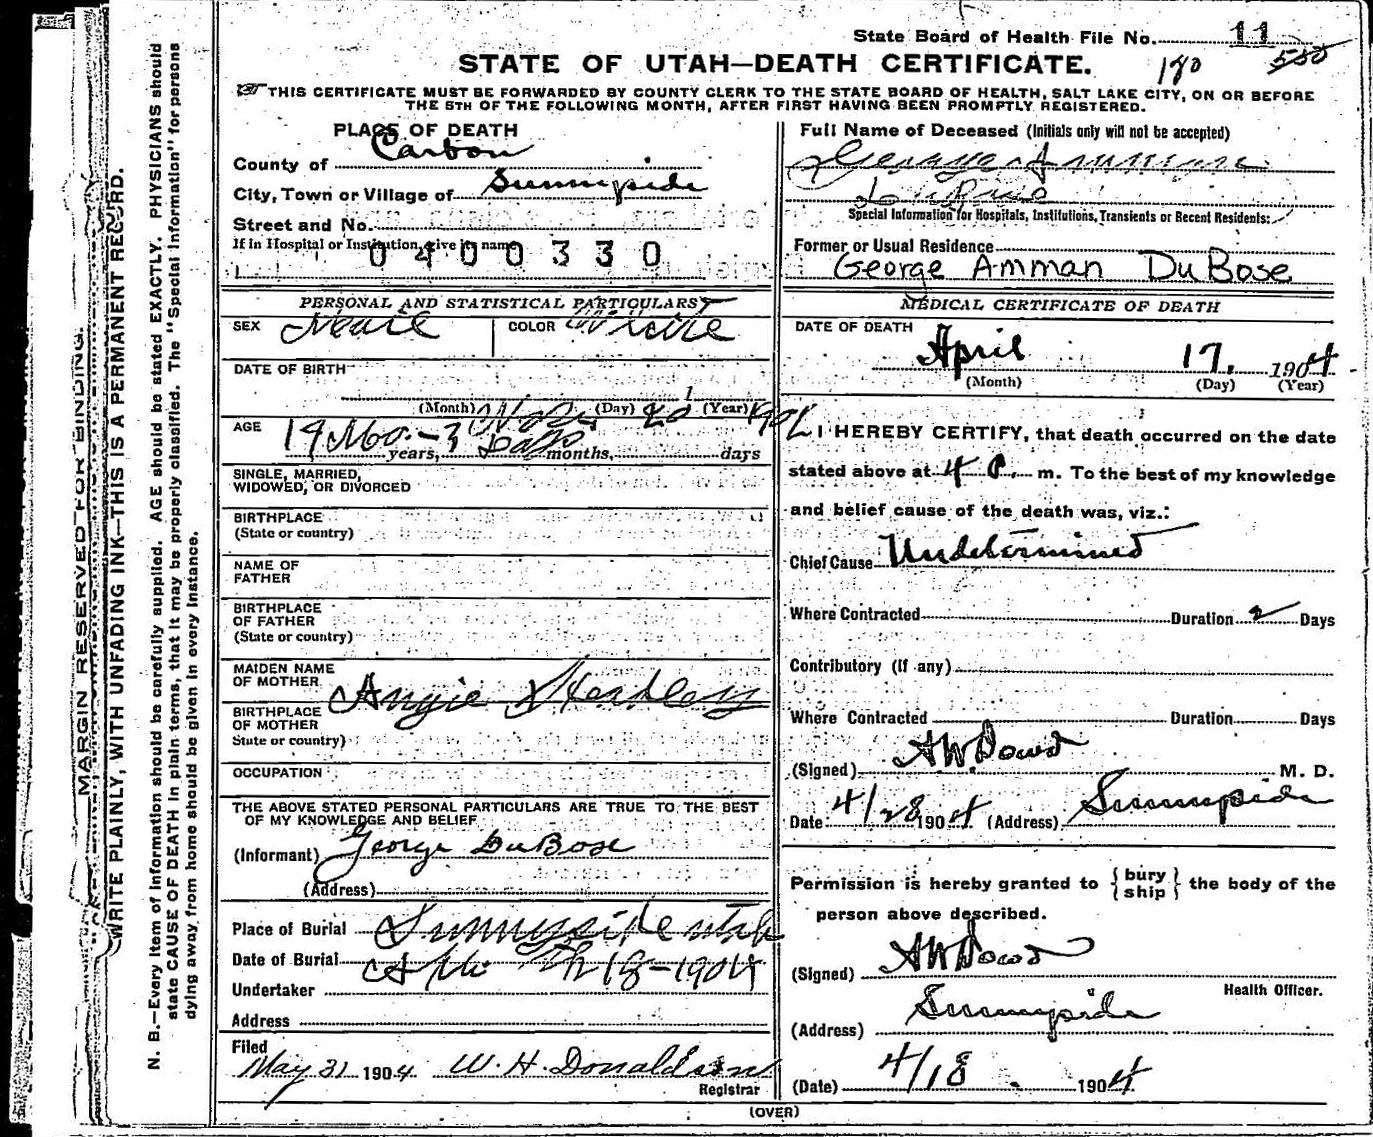 State Board of Health File No. 11
STATE OF UTAH—DEATH CERTIFICATE. 180 550
THIS CERTIFICATE MUST BE FORWARDED BY COUNTY CLERK TO THE STATE BOARD OF HEALTH, SALT LAKE CITY, ON OR BEFORE
THE 5TH OF THE FOLLOWING MONTH, AFTER FIRST HAVING BEEN PROMPTLY REGISTERED.
PLACE OF DEATH
County of Carbon
City, Town or Village of Sunnyside
Street and No.
If in Hospital or Institution, give its name
0400330
PERSONAL AND STATISTICAL PARTICULARS
SEX Male COLOR White
DATE OF BIRTH
(Month) (Day) (Year)
AGE 19 Mo. - 3 Days
years, months, days
SINGLE, MARRIED,
WIDOWED, OR DIVORCED
BIRTHPLACE
(State or country)
NAME OF
FATHER
BIRTHPLACE
OF FATHER
(State or country)
MAIDEN NAME
OF MOTHER Angie
BIRTHPLACE
OF MOTHER
State or country)
OCCUPATION
THE ABOVE STATED PERSONAL PARTICULARS ARE TRUE TO THE BEST
OF MY KNOWLEDGE AND BELIEF
(Informant) George DuBose
(Address)
Place of Burial Sunnyside Utah
Date of Burial 18-1904
Undertaker
Address
Filed
May 31 1904 W. H. Donaldson
Registrar
Full Name of Deceased (Initials only will not be accepted)
George Amman
DuBose
Special Information for Hospitals, Institutions, Transients or Recent Residents:
Former or Usual Residence
George Amman DuBose
MEDICAL CERTIFICATE OF DEATH
DATE OF DEATH
April 17, 1904
(Month) (Day) (Year)
I HEREBY CERTIFY, that death occurred on the date
stated above at 4 P. m. To the best of my knowledge
and belief cause of the death was, viz.:
Chief Cause Undetermined
Where Contracted Duration 2 Days
Contributory (if any)
Where Contracted Duration Days
(Signed) A W Dowd M. D.
Date 4/28 1904 (Address) Sunnyside
Permission is hereby granted to { bury ship } the body of the
person above described.
(Signed) A W Dowd
Health Officer.
(Address) Sunnyside
(Date) 4/18 1904
(OVER)
MARGIN RESERVED FOR BINDING.
WRITE PLAINLY, WITH UNFADING INK—THIS IS A PERMANENT RECORD.
N. B.—Every item of information should be carefully supplied. AGE should be stated EXACTLY. PHYSICIANS should
state CAUSE OF DEATH in plain terms, that it may be properly classified. The "Special Information" for persons
dying away from home should be given in every instance.